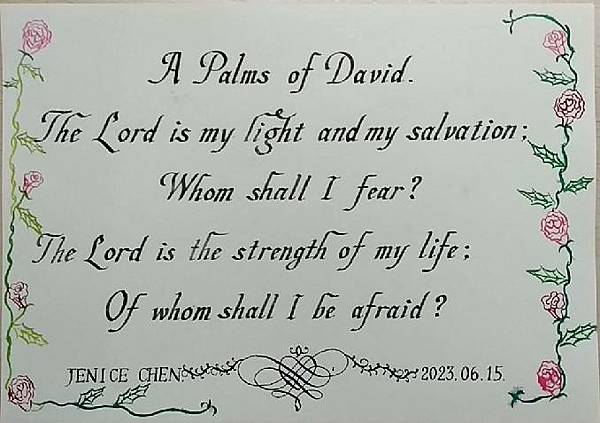 A Palms of David.
The Lord is my light and my salvation;
Whom shall I fear?
The Lord is the strength of my life;
Of whom shall I be afraid?
JENICE CHEN. 2023.06.15.